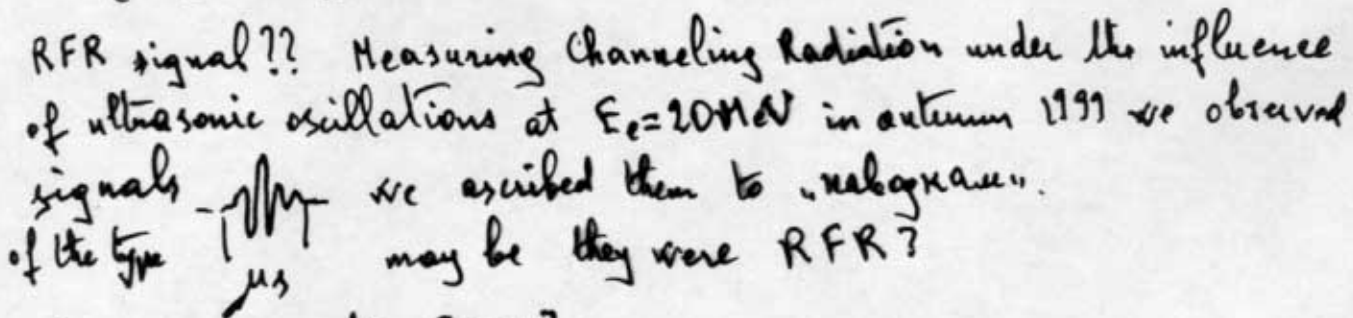 RFR signal?? Measuring Channeling Radiation under the influence
of ultrasonic oscillations at Ee=20MeV in autumn 1999 we observed
signals we ascribed them to „наводкам“.
of the type may be they were RFR?
μs